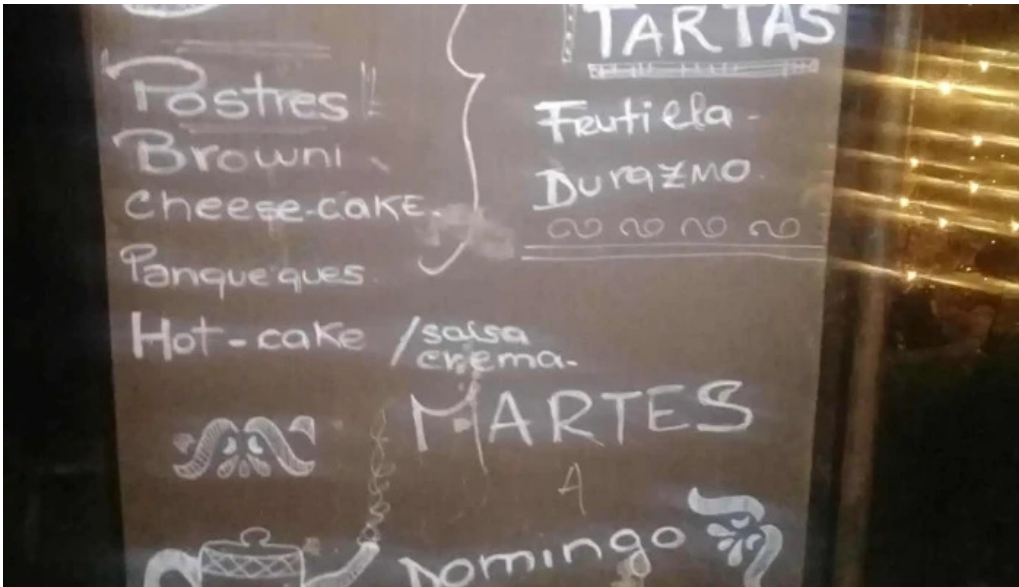 Postres!!
Browni
Cheese-cake.
Panqueques.
Hot-cake /salsa
crema.
TARTAS
Frutilla-
Durazmo.
MARTES
A
Domingo